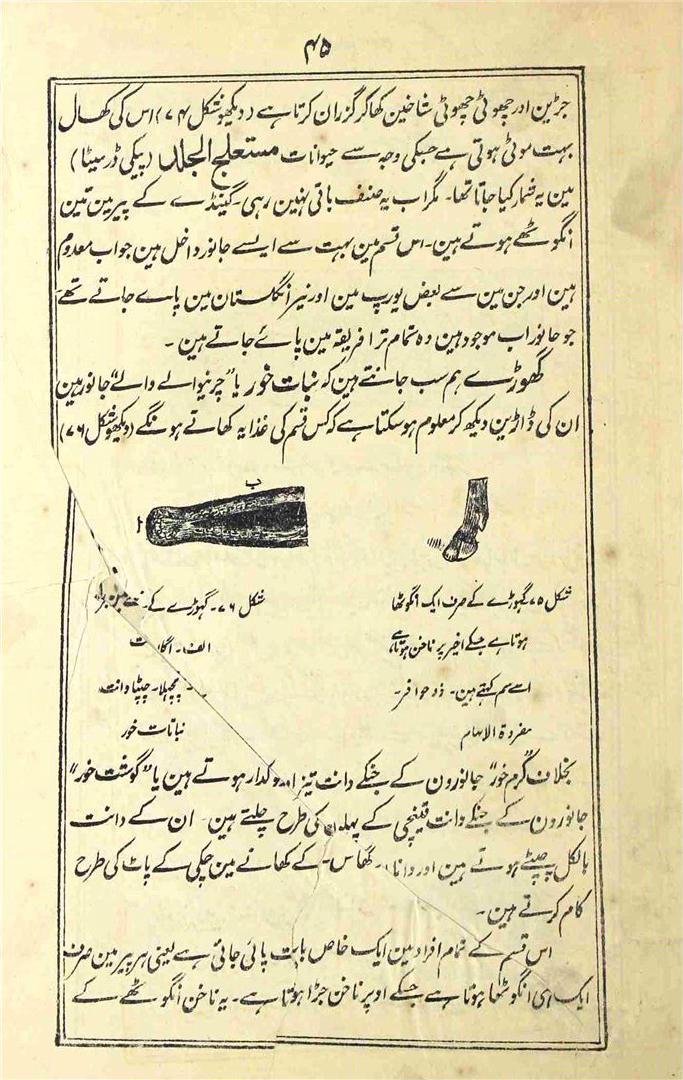 ۴۵
جڑین اور چھوٹی چھوٹی شاخین کھاکر گزران کرتا ہے (دیکھو شکل ۷۴) اس کی کھال
بہت موٹی ہوتی ہے جسکی وجہ سے حیوانات مستعلج الجلد (پیکی ڈرمیٹا)
مین یہ شمار کیا جاتا تھا۔ مگر اب یہ صنف باقی نہین رہی۔ گینڈے کے پیر مین تین
انگوٹھے ہوتے ہین۔ اس قسم مین بہت سے ایسے جانور داخل ہین جواب معدوم
ہین اور جن مین سے بعض یورپ مین اور نیز انگلستان مین پاے جاتے تھے
جو جانور اب موجود ہین وہ تمام تر افریقہ مین پاے جاتے ہین۔
گھوڑے ہم سب جانتے ہین کہ نبات خور یا "چرنیوالے والے" جانور ہین
ان کی ڈاڑین دیکھ کر معلوم ہو سکتا ہے کہ کس قسم کی غذا یہ کھاتے ہونگے (دیکھو شکل ۷۶)
ب
ا
شکل ۷۵ گھوڑے کے صرف ایک انگوٹھا
ہوتا ہے جسکے اخیر پر ناخن ہوتا ہے
اسے سم کہتے ہین۔ ذو حوافر۔
مفردۃ الابہام
شکل ۷۶۔ گھوڑے کے
الف۔
پچھلا۔ چپٹا دانت
نباتات خور
بخلاف "کرم خور" جانورون کے جنکے دانت تیز اور نوکدار ہوتے ہین یا "گوشت خور"
جانورون کے جنکے دانت قینچی کے پھلون کی طرح چلتے ہین۔ ان کے دانت
بالکل چپٹے ہوتے ہین اور دانا۔ گھاس۔ کے کھانے مین چکی کے پاٹ کی طرح
کام کرتے ہین۔
اس قسم کے تمام افراد مین ایک خاص بات پائی جاتی ہے یعنی ہر پیر مین صرف
ایک ہی انگوٹھا ہوتا ہے جسکے اوپر ناخن جڑا ہوتا ہے۔ یہ ناخن انگوٹھے کے